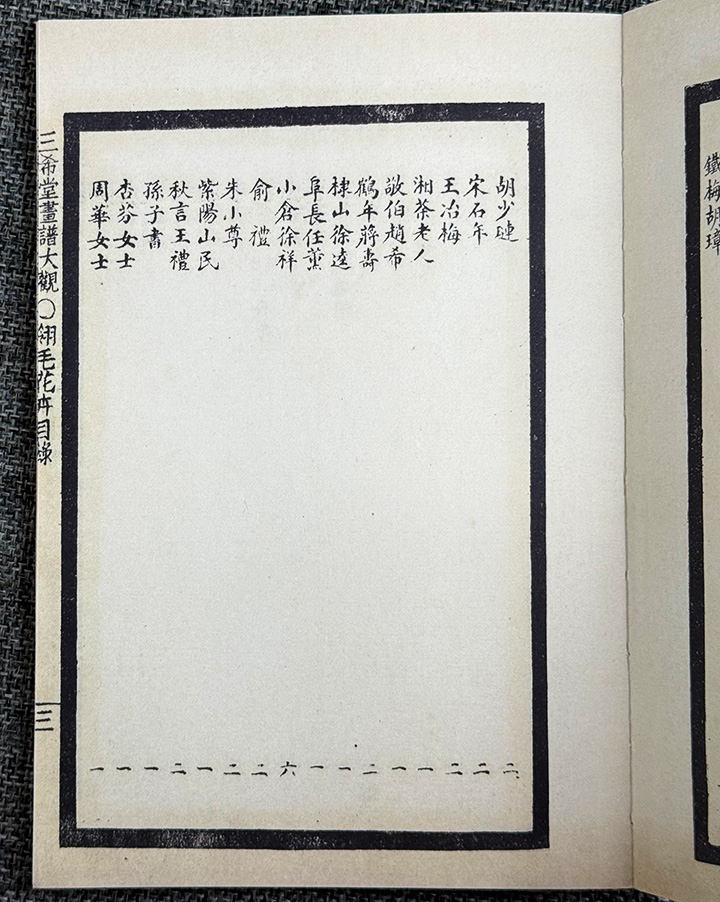 鐵梅胡璋
胡少璉 二
宋石年 二
王冶梅 二
湘茶老人 一
敬伯趙希 一
鶴年蔣壽 二
棣山徐遠 一
阜長任薰 一
小倉徐祥 六
俞禮 二
朱小尊 二
紫陽山民 一
秋言王禮 二
孫子書 一
杏芬女士 一
周華女士 一
三希堂畫譜大觀〇翎毛花卉目錄 三